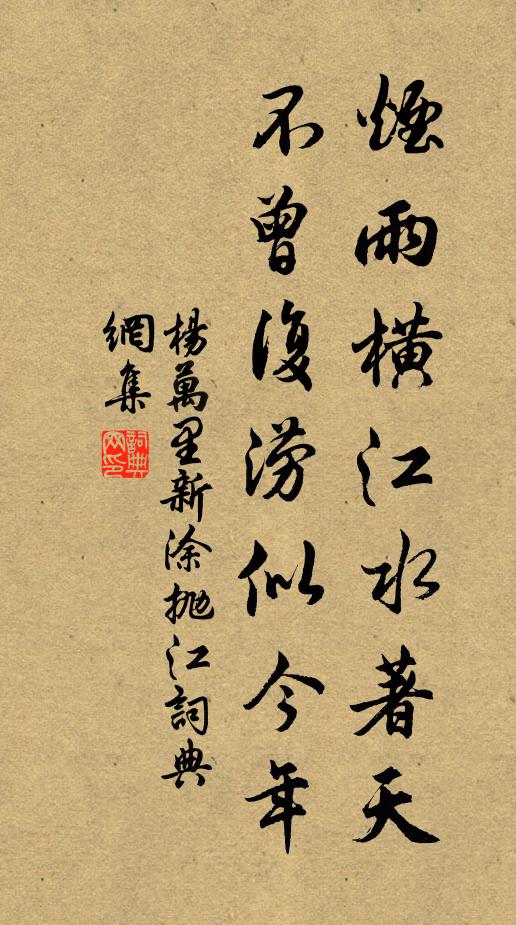 煙雨橫江水著天
不曾復澇似今年
楊萬里新涂拋江詞典
網集
詞典
网印